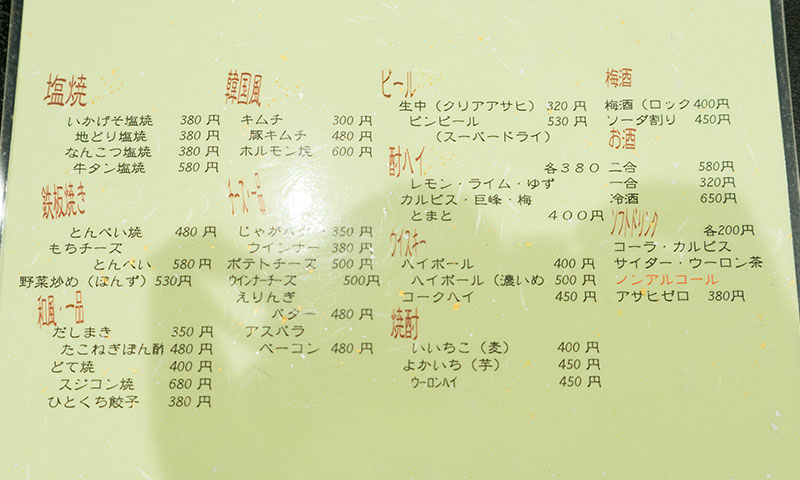 塩焼
いかげそ塩焼 380円
地どり塩焼 380円
なんこつ塩焼 380円
牛タン塩焼 580円
鉄板焼き
とんぺい焼 480円
もちチーズ
とんぺい 580円
野菜炒め（ぽんず）530円
和風・一品
だしまき 350円
たこねぎぽん酢 480円
どて焼 400円
スジコン焼 680円
ひとくち餃子 380円
韓国風
キムチ 300円
豚キムチ 480円
ホルモン焼 600円
チーズ・一品
じゃがバター 350円
ウインナー 380円
ポテトチーズ 500円
ウインナーチーズ 500円
えりんぎ
バター 480円
アスパラ
ベーコン 480円
ビール
生中（クリアアサヒ）320円
ビンビール 530円
（スーパードライ）
酎ハイ
各380
レモン・ライム・ゆず
カルピス・巨峰・梅
とまと 400円
ウイスキー
ハイボール 400円
ハイボール（濃いめ 500円
コークハイ 450円
焼酎
いいちこ（麦） 400円
よかいち（芋） 450円
ウーロンハイ 450円
梅酒
梅酒（ロック 400円
ソーダ割り 450円
お酒
二合 580円
一合 320円
冷酒 650円
ソフトドリンク
各200円
コーラ・カルピス
サイダー・ウーロン茶
ノンアルコール
アサヒゼロ 380円